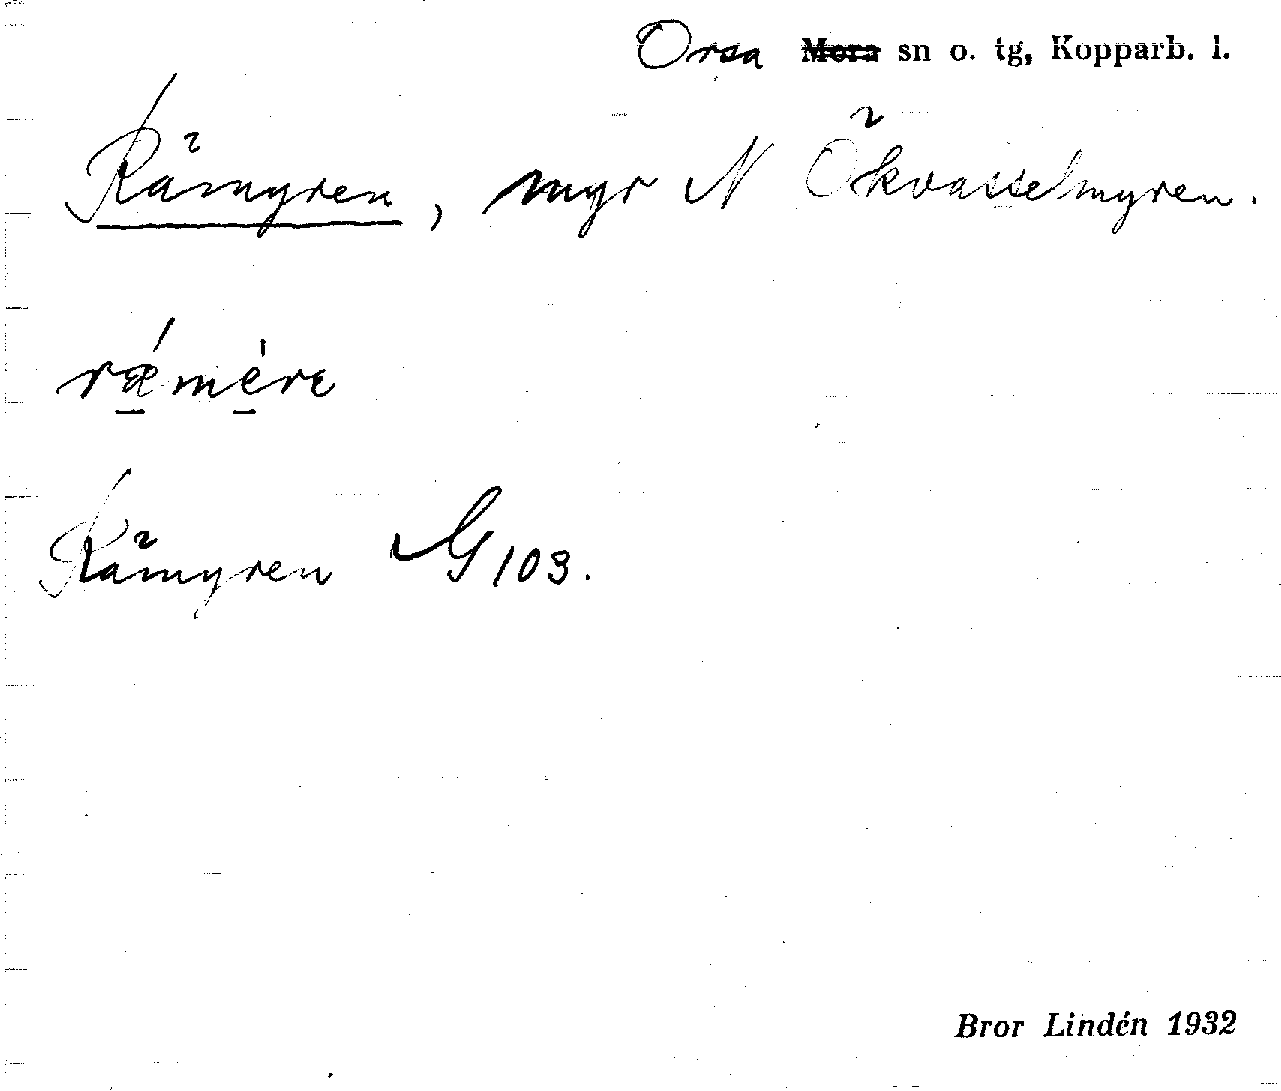 Orsa ~~Mora~~ sn o. tg, Kopparb. l.
Råmyren, myr N Ökvasselmyren.
rǽmère
Råmyren G 103.
Bror Lindén 1932